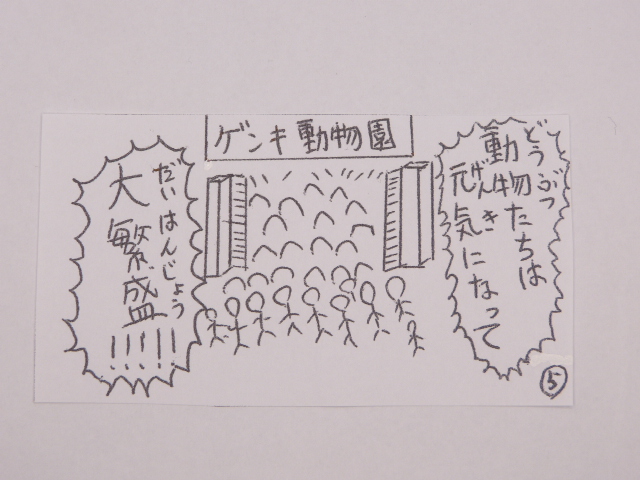 ゲンキ動物園
どうぶつ
動物たちは
げんき
元気になって
だいはんじょう
大繁盛!!!!!
5